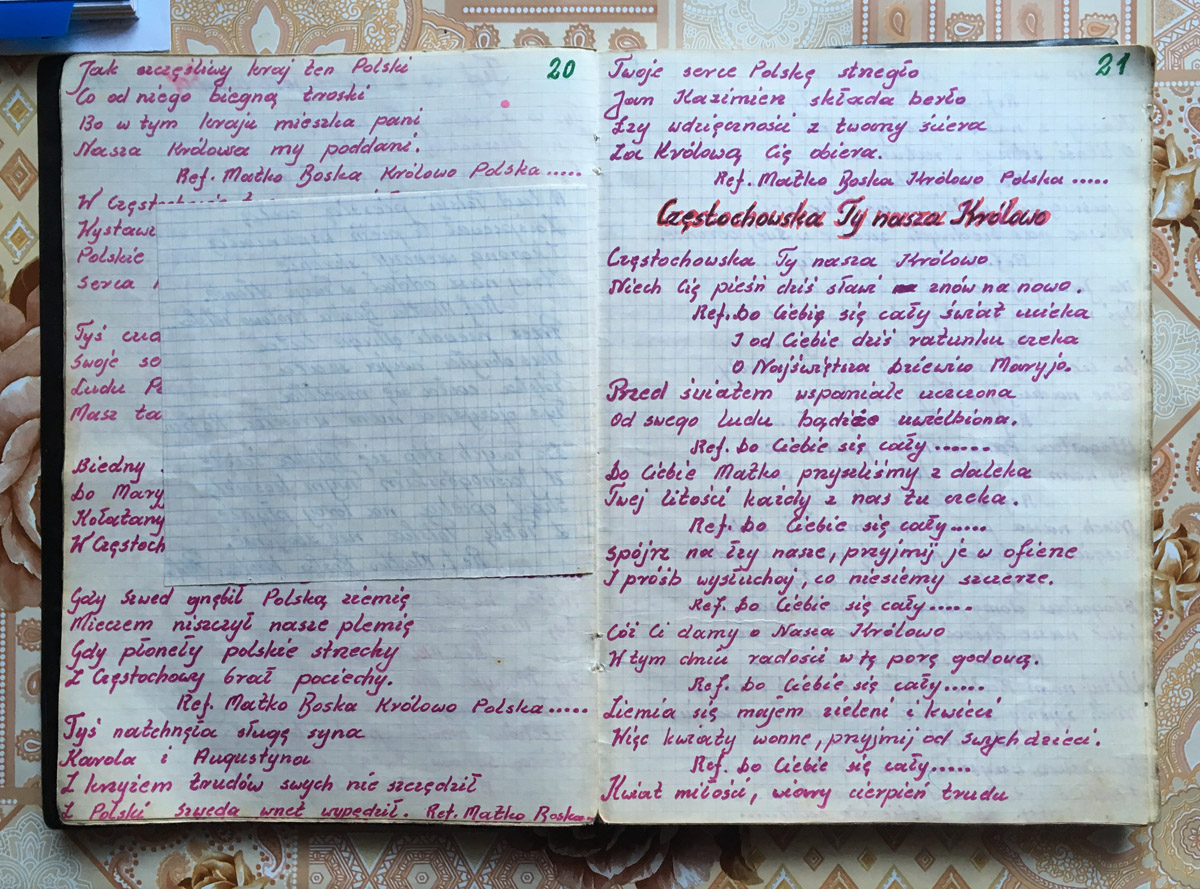 Jak szczęśliwy kraj ten Polski
20
Co od niego biegną troski
Bo w tym kraju mieszka pani
Nasza Królowa my poddani.
Ref. Matko Boska Królowo Polska.....
W
Wystawi
Polskie
Serca
Tyś
Swoje
Ludu
Masz
Biedny
Do Mary
Kołatany
W Częstoch
Gdy Szwed gnębił Polską ziemię
Mieczem niszczył nasze plemię
Gdy płoneły polskie strzechy
Z Częstochowy brał pociechy.
Ref. Matko Boska Królowo Polska.....
Tyś natchnęła sługę syna
Karola i Augustyna
Z krzyżem trudów swych nie szczędził
Z Polski szweda wnet wypędził. Ref. Matko Boska
Twoje serce Polskę strzegło
21
Jan Kazimierz składa berło
Łzy wdzięczności z twarzy ściera
Za Królową Cię obiera.
Ref. Matko Boska Królowo Polska.....
Częstochowska Ty nasza Królowo
Częstochowska Ty nasza Królowo
Niech Cię pieśń dziś sławi znów na nowo.
Ref. Do Ciebie się cały świat ucieka
I od Ciebie dziś ratunku czeka
O Najświętsza Dziewico Maryjo.
Przed światem wspaniale uczczona
Od swego ludu bądźże uwielbiona.
Ref. Do Ciebie się cały......
Do Ciebie Matko przyszliśmy z daleka
Twej litości każdy z nas tu czeka.
Ref. Do Ciebie się cały.....
Spójrz na łzy nasze, przyjmij je w ofierze
I próśb wysłuchaj, co niesiemy szczerze.
Ref. Do Ciebie się cały.....
Cóż Ci damy o Nasza Królowo
W tym dniu radości w tę porę godową.
Ref. Do Ciebie się cały.....
Ziemia się majem zieleni i kwieci
Więc kwiaty wonne, przyjmij od swych dzieci.
Ref. Do Ciebie się cały.....
Kwiat miłości, wiary cierpień trudu